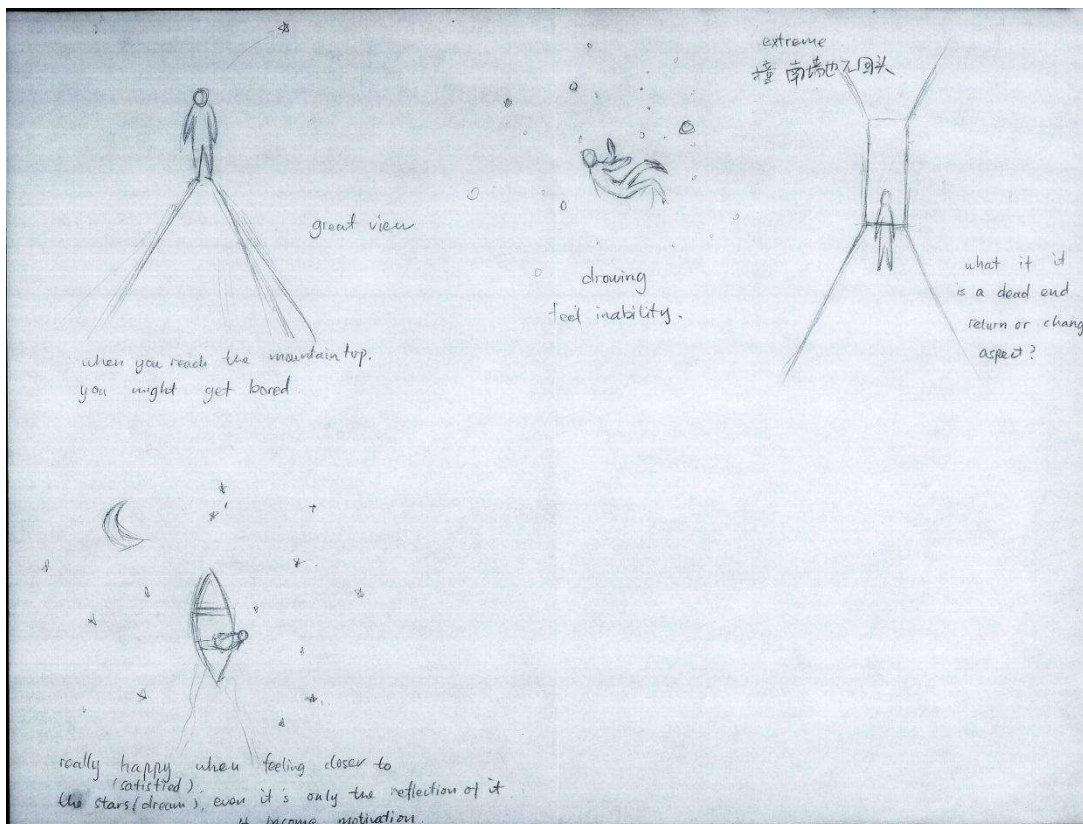 great view
when you reach the mountain top.
you might get bored
drowing
feel inability.
extreme
撞南墙也不回头
what it it
is a dead end
return or chang
aspect?
really happy when feeling closer to
(satisfied).
the stars(dream), even it's only the reflection of it
it become motivation.